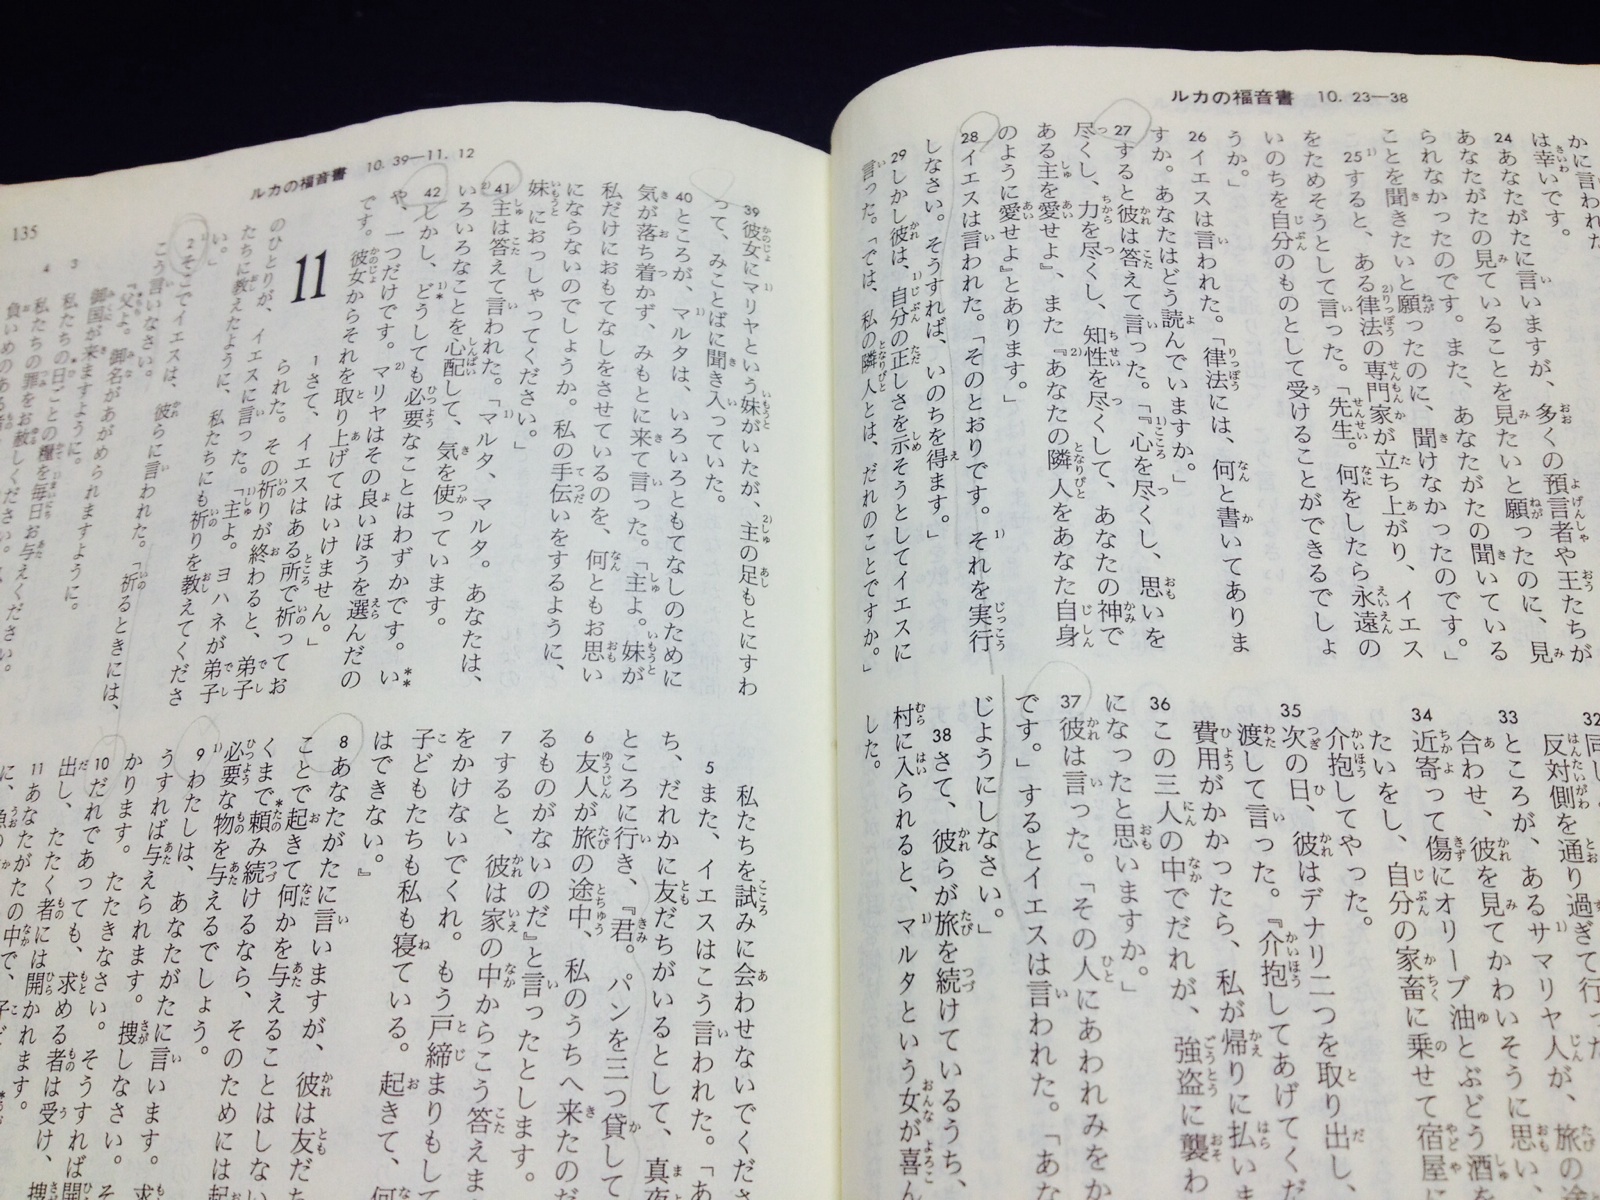 ルカの福音書 10. 23—38
かに言われた
は幸いです。
24 あなたがたに言いますが、多くの預言者や王たちが
あなたがたの見ていることを見たいと願ったのに、見
られなかったのです。また、あなたがたの聞いている
ことを聞きたいと願ったのに、聞けなかったのです。」
25 すると、ある律法の専門家が立ち上がり、イエス
をためそうとして言った。「先生。何をしたら永遠の
いのちを自分のものとして受けることができるでしょ
うか。」
26 イエスは言われた。「律法には、何と書いてありま
すか。あなたはどう読んでいますか。」
27 すると彼は答えて言った。「『心を尽くし、思いを
尽くし、力を尽くし、知性を尽くして、あなたの神で
ある主を愛せよ』、また『あなたの隣人をあなた自身
のように愛せよ』とあります。」
28 イエスは言われた。「そのとおりです。それを実行
しなさい。そうすれば、いのちを得ます。」
29 しかし彼は、自分の正しさを示そうとしてイエスに
言った。「では、私の隣人とは、だれのことですか。」
32 同じ
反対側を通り過ぎて行った
33 ところが、あるサマリヤ人が、旅の
合わせ、彼を見てかわいそうに思い、
34 近寄って傷にオリーブ油とぶどう酒を
たいをし、自分の家畜に乗せて宿屋に
介抱してやった。
35 次の日、彼はデナリ二つを取り出し、
渡して言った。『介抱してあげてくだ
費用がかかったら、私が帰りに払いま
36 この三人の中でだれが、強盗に襲わ
になったと思いますか。」
37 彼は言った。「その人にあわれみをか
です。」するとイエスは言われた。「あな
じようにしなさい。」
38 さて、彼らが旅を続けているうち、
村に入られると、マルタという女が喜ん
した。
ルカの福音書 10. 39—11. 12
39 彼女にマリヤという妹がいたが、主の足もとにすわ
って、みことばに聞き入っていた。
40 ところが、マルタは、いろいろともてなしのために
気が落ち着かず、みもとに来て言った。「主よ。妹が
私だけにおもてなしをさせているのを、何ともお思い
にならないのでしょうか。私の手伝いをするように、
妹におっしゃってください。」
41 主は答えて言われた。「マルタ、マルタ。あなたは、
いろいろなことを心配して、気を使っています。
42 しかし、どうしても必要なことはわずかです。い
や、一つだけです。マリヤはその良いほうを選んだの
です。彼女からそれを取り上げてはいけません。」
11
1 さて、イエスはある所で祈ってお
られた。その祈りが終わると、弟子
のひとりが、イエスに言った。「主よ。ヨハネが弟子
たちに教えたように、私たちにも祈りを教えてくださ
い。」
2 そこでイエスは、彼らに言われた。「祈るときには、
こう言いなさい。
『父よ。御名があがめられますように。
御国が来ますように。
3 私たちの日ごとの糧を毎日お与えください。
4 私たちの罪をお赦しください。
負いめのある
135
私たちを試みに会わせないでくださ
5 また、イエスはこう言われた。「あ
ち、だれかに友だちがいるとして、真夜
ところに行き、『君。パンを三つ貸して
6 友人が旅の途中、私のうちへ来たのだ
るものがないのだ』と言ったとします。
7 すると、彼は家の中からこう答えま
をかけないでくれ。もう戸締まりもして
子どもたちも私も寝ている。起きて、何
はできない。』
8 あなたがたに言いますが、彼は友だち
ことで起きて何かを与えることはしない
くまで頼み続けるなら、そのためには起
必要な物を与えるでしょう。
9 わたしは、あなたがたに言います。求
うすれば与えられます。捜しなさい。そ
かります。たたきなさい。そうすれば開
10 だれであっても、求める者は受け、捜
出し、たたく者には開かれます。
11 あなたがたの中で、子ど